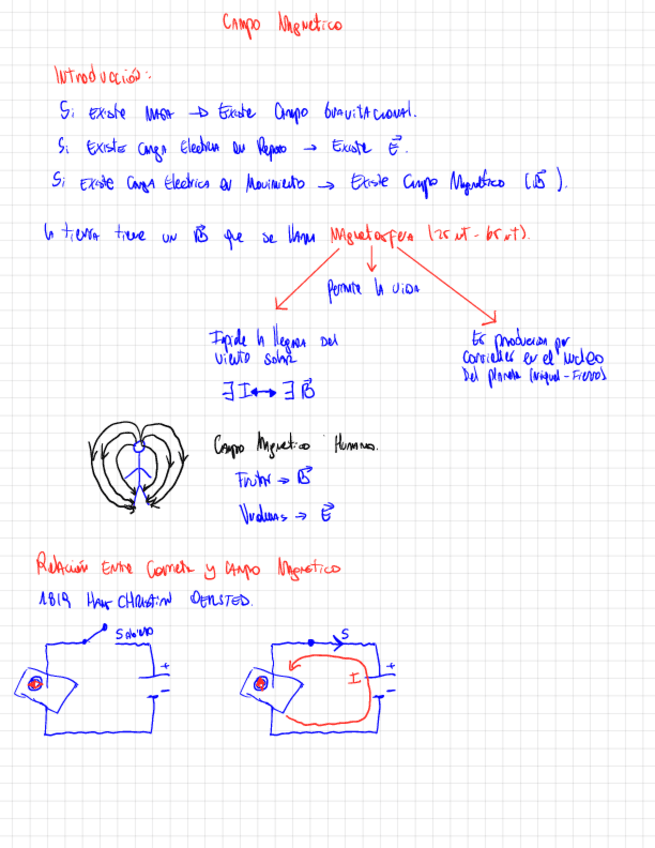 Campo Magnetico
Introducción:
Si Existe MASA → Existe Campo Gravitacional.
Si Existe Carga Electrica en Reposo → Existe E⃗.
Si Existe Carga Electrica en Movimiento → Existe Campo Magnético (B⃗).
la tierra tiene un B⃗ que se llama Magnetosfera (25 μT - 65 μT).
Permite la vida
Impide la llegada del
viento solar
∃ I ↔ ∃ B⃗
Es producida por
corrientes en el nucleo
Del planeta (niquel - Fierro)
Campo Magnetico Humano.
→ B⃗
→ E⃗
Relación Entre Corriente y Campo Magnetico
1819 Hans CHRistian OERSTED.
S abierto
+
-
S
I
+
-